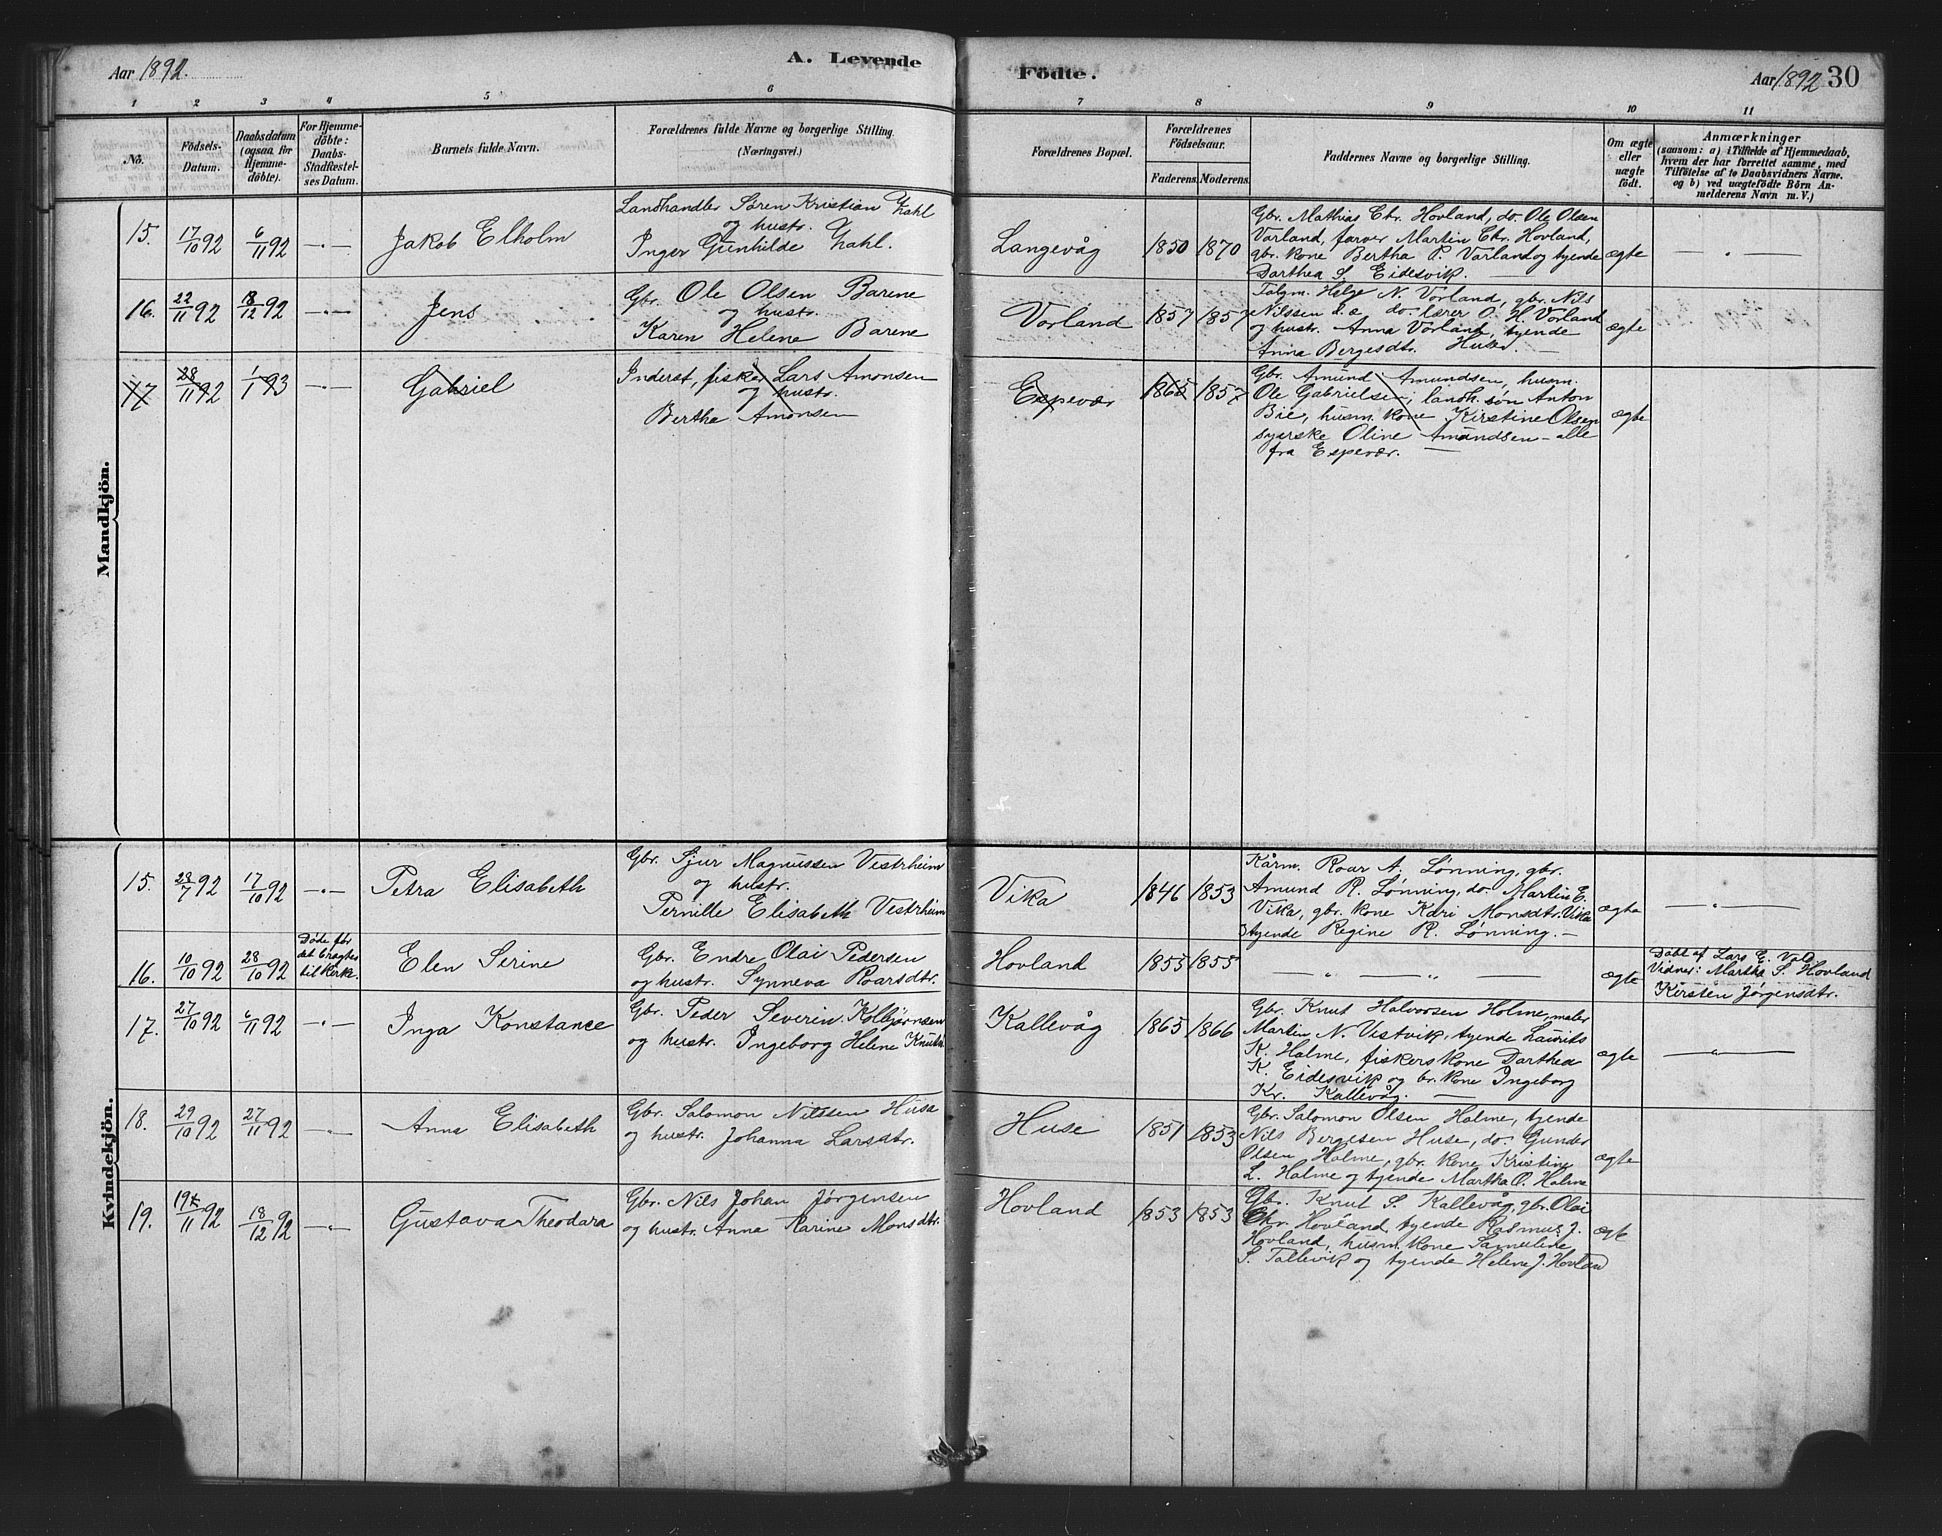 Aar 1892. A. Levende Födte. Aar 1892 30
1 2 3 4 5 6 7 8 9 10 11
No. Födsels-Datum. Daabsdatum (ogsaa for Hjemmedöbte). For Hjemmedöbte: Daabs-Stadfæstelses Datum. Barnets fulde Navn. Forældrenes fulde Navne og borgerlige Stilling. (Næringsvei.) Forældrenes Bopæl. Forældrenes Födselsaar. Faderens. Moderens. Faddernes Navne og borgerlige Stilling. Om ægte eller uægte födt. Anmærkninger (saasom: a) i Tilfælde af Hjemmedaab, hvem der har forrettet samme, med Tilföielse af to Daabsvidners Navne. og b) ved uægtefödte Börn Anmelderens Navn m. V.)
Mandkjön.
15. 17/10 92 6/11 92 Jakob Elholm
Landhandler Søren Kristian Zahl
og hustr.
Inger Gunhilde Zahl.
Langevåg 1850 1870
Gbr. Mathias Chr. Hovland, do Ole Olsen
Vorland, farver Martin Chr. Hovland,
gbr. kone Bertha P. Vorland og tyende
Darthea S. Eidesvik.
ægte
16. 22/11 92 18/12 92 Jens
Gbr. Ole Olsen Barene
og hustr.
Karen Helene Barene
Vorland 1857 1857
Tolgm. Helge N. Vorland, gbr. Nils
Nilssen s. s. do. lærer O. H. Vorland
og hustr. Anna Vorland, tyende
Anna Bergesdtr. Huse.
ægte
17 28/11 92 1/1 93 Gabriel
Inderst, fisker Lars Amonsen
og hustr.
Bertha Amonsen
Espevær 1865 1857
Gbr. Amund Amundsen, husm.
Ole Gabrielsen, landh. søn Anton
Bie, husm. kone Kirstine Olsen
syerske Oline Amundsen - alle
fra Espevær.
ægte
Kvindekjön.
15. 23/7 92 17/10 92 Petra Elisabeth
Gbr. Sjur Magnussen Vestrheim
og hustr.
Pernille Elisabeth Vestrheim
Vika 1846 1853
Kårm. Roar A. Lønning, gbr.
Amund R. Lønning, do. Martin E.
Vika, gbr. kone Kari Monsdtr. Vika
tyende Regine R. Lønning.
ægte
16. 10/10 92 28/10 92 Døde før
det bragtes
til kirke.
Elen Serine
Gbr. Endre Olai Pedersen
og hustr. Synneva Roarsdtr.
Hovland 1855 1855
ægte
Døbt af Lars E. Vold
Vidner: Martha S. Hovland
Kirsten Jørgensdtr.
17. 27/10 92 6/11 92 Inga Konstance
Gbr. Peder Severin Kolbjørnsen
og hustr. Ingeborg Helene Knutsd.
Kallevåg 1865 1866
Gbr. Knut Halvorsen Holme, maler
Martin N. Vestvik, tyende Laurits
K. Holme, fiskers kone Darthea
K. Eidesvik og br. kone Ingeborg
Kr. Kallevåg.
ægte
18. 29/10 92 27/11 92 Anna Elisabeth
Gbr. Salomon Nilssen Huse
og hustr. Johanna Larsdtr.
Huse 1851 1853
Gbr. Salomon Olsen Holme, tyende
Nils Bergesen Huse, do Gunder
Olsen Holme, gbr. kone Kristine
L. Holme og tyende Martha O. Holme
ægte
19. 11 92 18/12 92 Gustava Theodora
Gbr. Nils Johan Jørgensen
og hustr. Anna Karine Monsdtr.
Hovland 1853 1853
Gbr. Knut S. Kallevåg, gbr. Olai
Chr. Hovland, tyende Rasmus J.
Hovland, husm. kone Samuline
S. Tollevik og tyende Helene J. Hovland
ægte